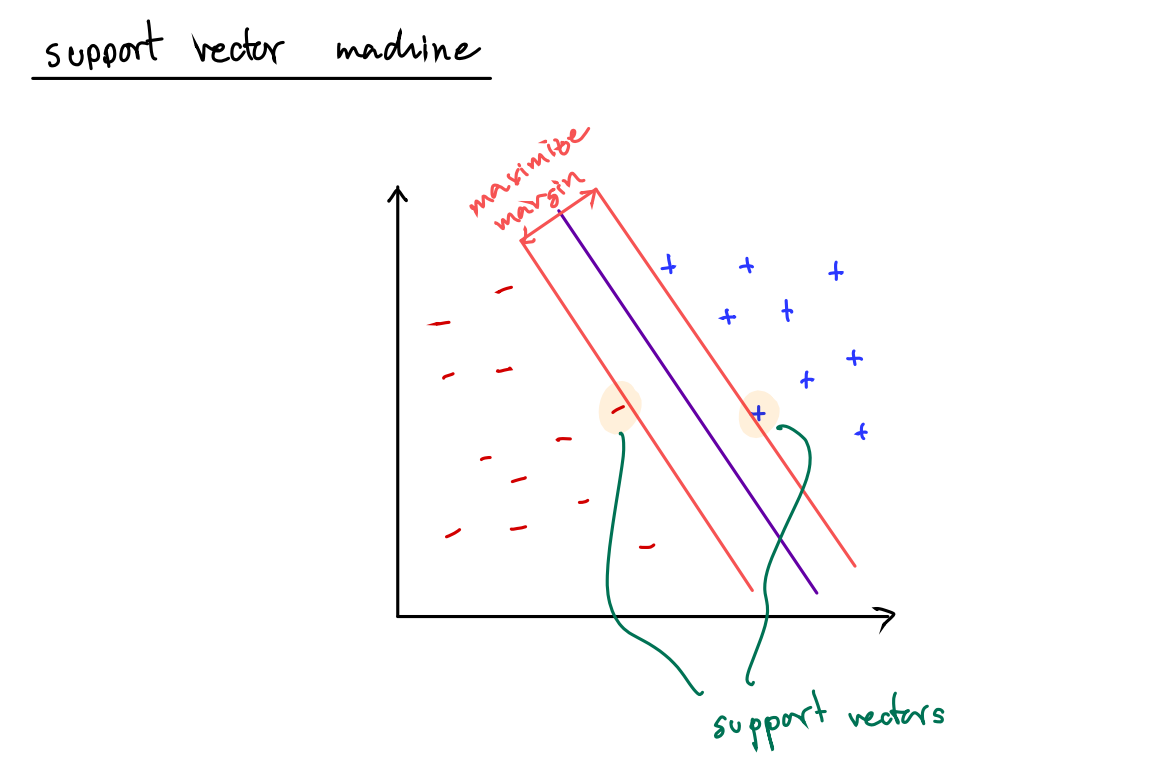 support vector machine
maximize
margin
support vectors